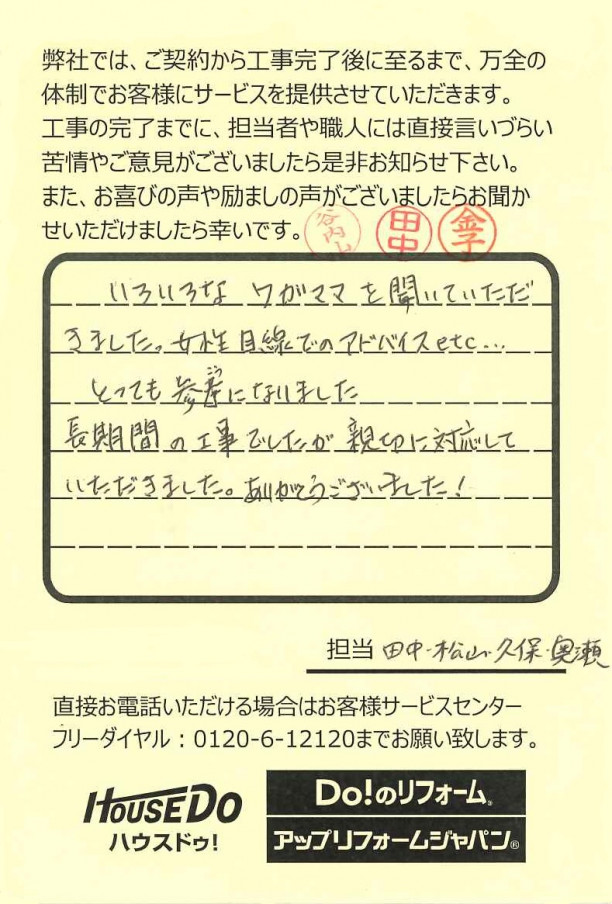 弊社では、ご契約から工事完了後に至るまで、万全の
体制でお客様にサービスを提供させていただきます。
工事の完了までに、担当者や職人には直接言いづらい
苦情やご意見がございましたら是非お知らせ下さい。
また、お喜びの声や励ましの声がございましたらお聞か
せいただけましたら幸いです。
谷内山 田中 金子
いろいろな ワガママを聞いていただ
きました。女性目線でのアドバイスetc...
とっても参考になりました
長期間の工事でしたが 親切に対応して
いただきました。ありがとうございました!
担当 田中・松山・久保・奥瀬
直接お電話いただける場合はお客様サービスセンター
フリーダイヤル:0120-6-12120までお願い致します。
HOUSEDO
ハウスドゥ!
Do!のリフォーム®
アップリフォームジャパン®